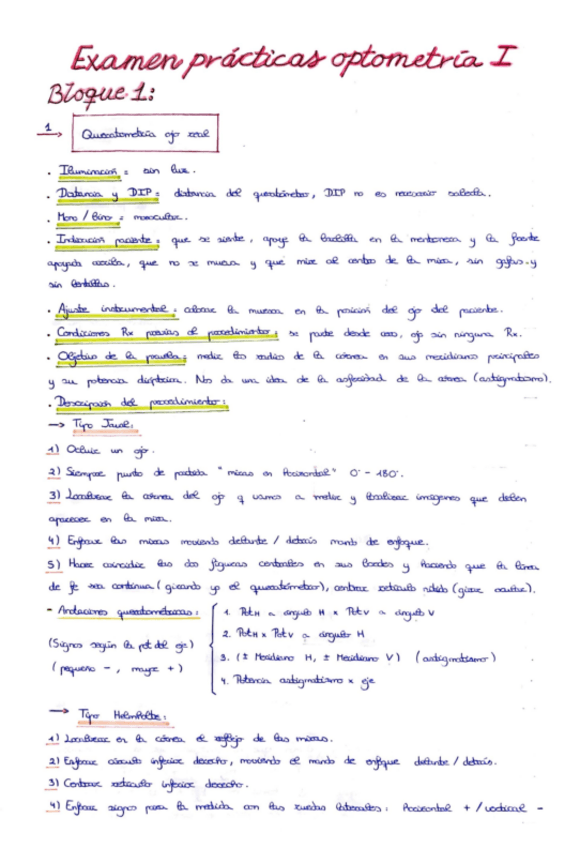 Examen prácticas optometría I
Bloque 1:
1 → Queratometría ojo real
· Iluminación: sin luz.
· Distancia y DIP: distancia del queratómetro, DIP no es necesario saberla.
· Mono / Bino: monocular.
· Indicación paciente: que se siente, apoye la barbilla en la mentonera y la frente
apoyada arriba, que no se mueva y que mire al centro de la mira, sin gafas y
sin lentillas.
· Ajuste instrumental: colocar la muesca en la posición del ojo del paciente.
· Condiciones Rx previas al procedimiento: se parte desde cero, ojo sin ninguna Rx.
· Objetivo de la prueba: medir los radios de la córnea en sus meridianos principales
y su potencia dióptrica. Nos da una idea de la asfericidad de la córnea (astigmatismo).
· Descripción del procedimiento:
→ Tipo Javal:
1) Ocluir un ojo.
2) Siempre punto de partida "miras en horizontal" 0º - 180º.
3) Localizar la córnea del ojo q vamos a medir y localizar imágenes que deben
aparecer en la mira.
4) Enfocar las miras moviendo delante / detrás mando de enfoque.
5) Hacer coincidir las dos figuras centrales en sus bordes y haciendo que la línea
de fe sea continua (girando yo el queratómetro), centrar retículo nítido (girar ocular).
- Anotaciones queratométricas:
(Signos según la pot del eje)
(pequeño - , mayor +)
1. Pot H a ángulo H x Pot V a ángulo V
2. Pot H x Pot V a ángulo H
3. (± Meridiano H, ± Meridiano V) (astigmatismo)
4. Potencia astigmatismo x eje
→ Tipo Helmholtz:
1) Localizar en la córnea el reflejo de las miras.
2) Enfocar círculo inferior derecho, moviendo el mando de enfoque delante / detrás.
3) Centrar retículo inferior derecho.
4) Enfocar signos para la medida con las ruedas laterales: horizontal + / vertical -